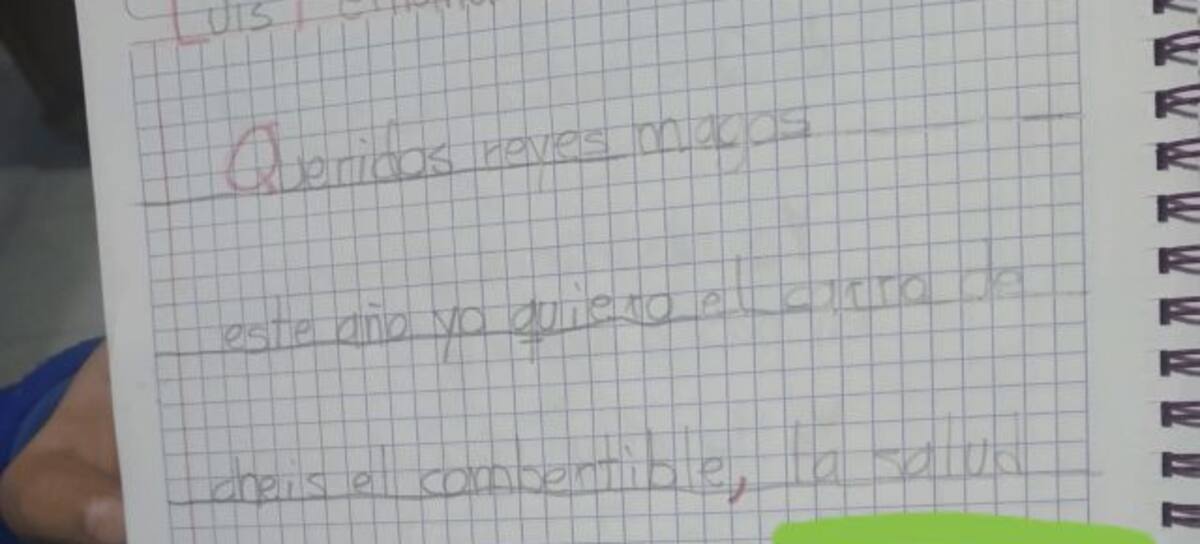 Luis
Queridos reyes magos
este año yo quiero el carro de
cheis el combertible, la salud